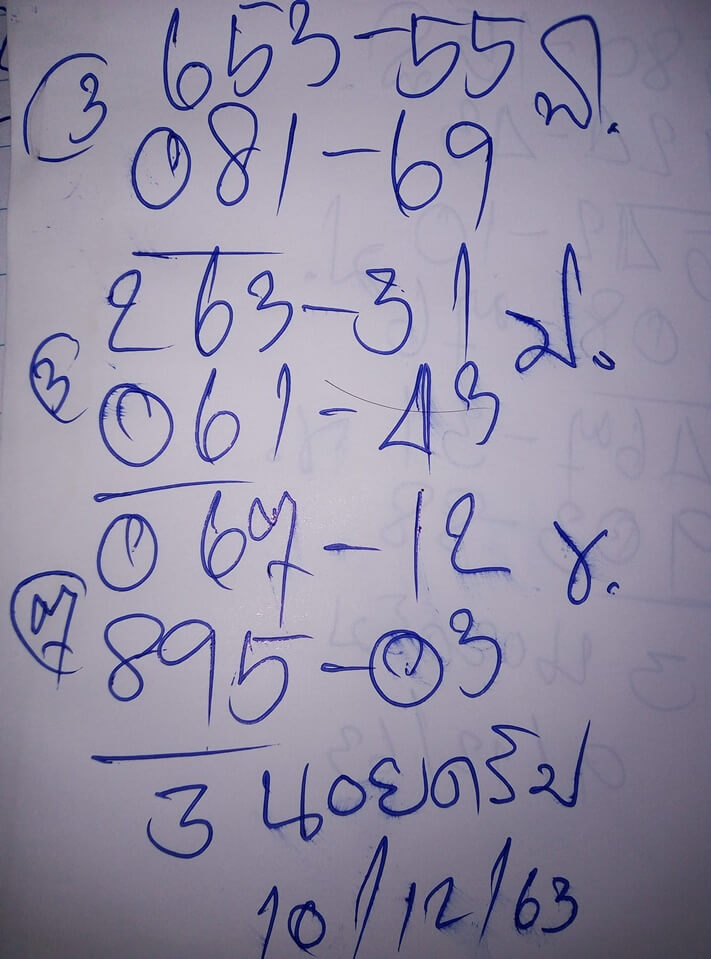 ③ 653-55 พ.
081-69
263-31 ม.
③ 061-43
067-12 ช.
⑦ 895-03
3 นอยครับ
10/12/63